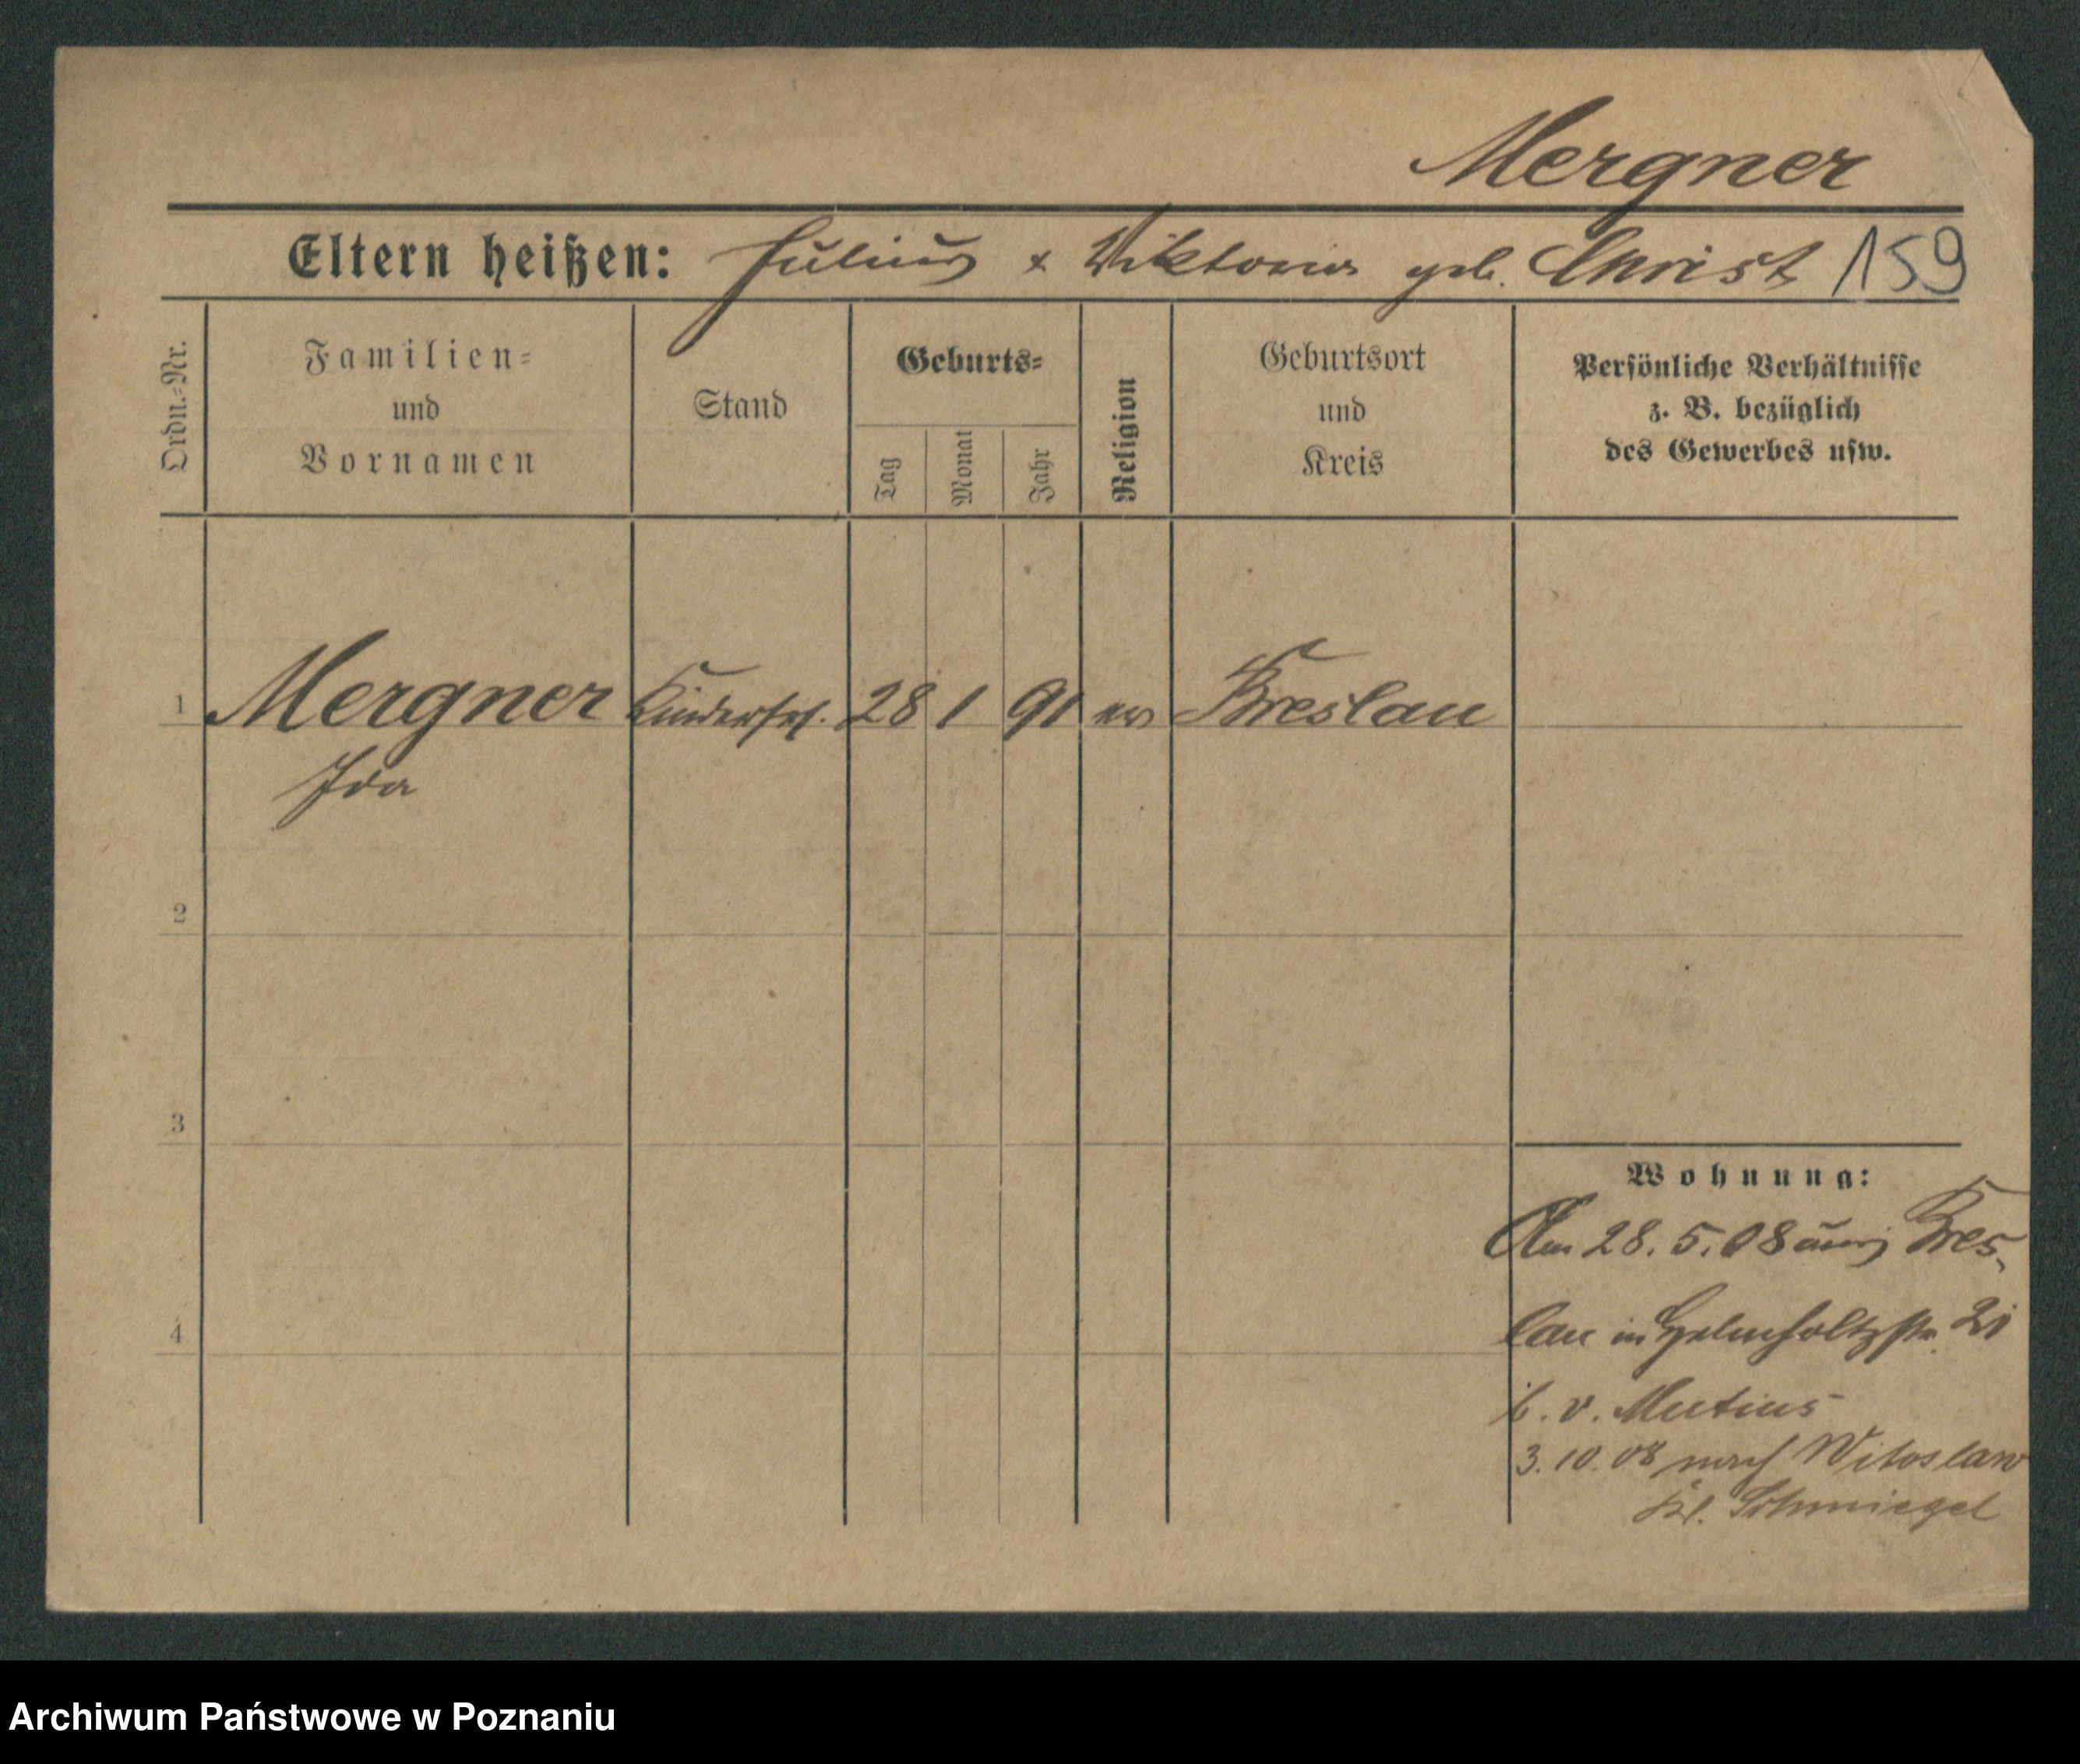 Mergner
Eltern heißen: Julius & Viktoria geb. Christ 159
Ordn.-Nr.
Familien-
und
Vornamen
Stand
Geburts-
Tag
Monat
Jahr
Religion
Geburtsort
und
Kreis
Persönliche Verhältnisse
z. B. bezüglich
des Gewerbes usw.
1 Mergner Kinderfrl. 28 1 91 ev Breslau
Ida
2
3
4
Wohnung:
Am 28. 5. 08 aus Bres-
lau in Helmholtzstr. 21
b. v. Mutius
3. 10. 08 nach Witoslaw
Schmiegel
Archiwum Państwowe w Poznaniu